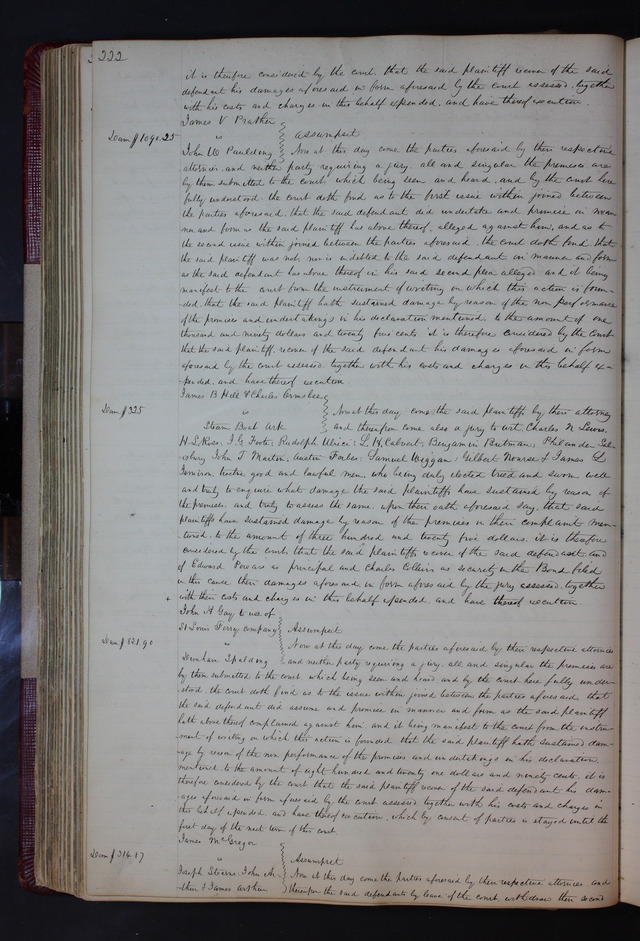 222
it is therefore considered by the court, that the said plaintiff recover of the said
defendant his damages aforesaid in form aforesaid by the court assessed, together
with his costs and charges in this behalf expended, and have thereof execution
James V Prather
Dam $1090.25 " Assumpsit
John W Paulding Now at this day come the parties aforesaid by their respective
attornies, and neither party requiring a jury, all and singular the premises are
by them submitted to the court, which being seen and heard, and by the court here
fully understood, the court doth find as to the first issue within joined between
the parties aforesaid, that the said defendant did undertake and promise in man
ner and form as the said plaintiff has above thereof, alleged against him, and as to
the second issue within joined between the parties aforesaid, the court doth found that
the said plaintiff was not, nor is indebted to the said defendant in manner and form
as the said defendant has above thereof in his said second plea alleged and it being
manifest to the court from the instrument of writing on which this action is foun-
ded, that the said plaintiff hath sustained damage by reason of the non performance
of the promises and undertakings in his declaration mentioned, to the amount of one
thousand and ninety dollars and twenty five cents it is therefore considered by the court
that the said plaintiff, recover of the said defendant his damages aforesaid in form
aforesaid by the court assessed, together with his costs and charges in this behalf ex-
pended, and have thereof execution
James B Hill & Charles Ormsbee
Dam $325 " Now at this day come the said plaintiffs by their attorney
Steam Boat Ark and thereupon come also a jury to wit, Charles N Lewis,
H. L. River, J. G. Foote, Rudolph Ulrici, L. H. Calvert, Benjamin Bridman, Philander Sal-
sbury John T Martin, Austin Forbes, Samuel Wiggan, Gilbert Nourse & James L
twelve good and lawful men, who being duly elected tried and sworn well
and truly to enquire what damage the said plaintiffs have sustained by reason of
the premises, and truly to assess the same, upon their oath aforesaid say, that said
plaintiffs have sustained damage by reason of the premises in their complaint men-
tioned, to the amount of three hundred and twenty five dollars, it is therefore
considered by the court, that the said plaintiffs recover of the said defendant and
of Edward as principal and Charles Collins as security in the Bond filed
in this cause their damages aforesaid, in form aforesaid by the jury assessed, together
with their costs and charges in this behalf expended, and have thereof execution.
John H Gay to use of
St Louis Ferry company Assumpsit
Dam $821.90 " Now at this day come the parties aforesaid by their respective attornies
Dunham Spalding and neither party requiring a jury, all and singular the premises are
by them submitted to the court, which being seen and heard and by the court here fully under-
stood, the court doth find as to the issue within joined between the parties aforesaid, that
the said defendant did assume and promise in manner and form as the said plaintiff
hath above thereof complained against him, and it being manifest to the court from the instru-
ment of writing on which this action is founded that the said plaintiff hath sustained dam-
age by reason of the non performance of the promises and undertakings in his declaration
mentioned, to the amount of eight hundred and twenty one dollars and ninety cents, it is
therefore considered by the court that the said plaintiff recover of the said defendant his dam-
ages aforesaid in form aforesaid by the court assessed together with his costs and charges in
this behalf expended, and have thereof execution, which by consent of parties is stayed until the
first day of the next term of this court.
James McGregor
Dam $314.17 " Assumpsit
Joseph Stearns, John Ar- Now at this day come the parties aforesaid by their respective attornies, and
thur & James Arthur thereupon the said defendants by leave of the court, withdraw their second